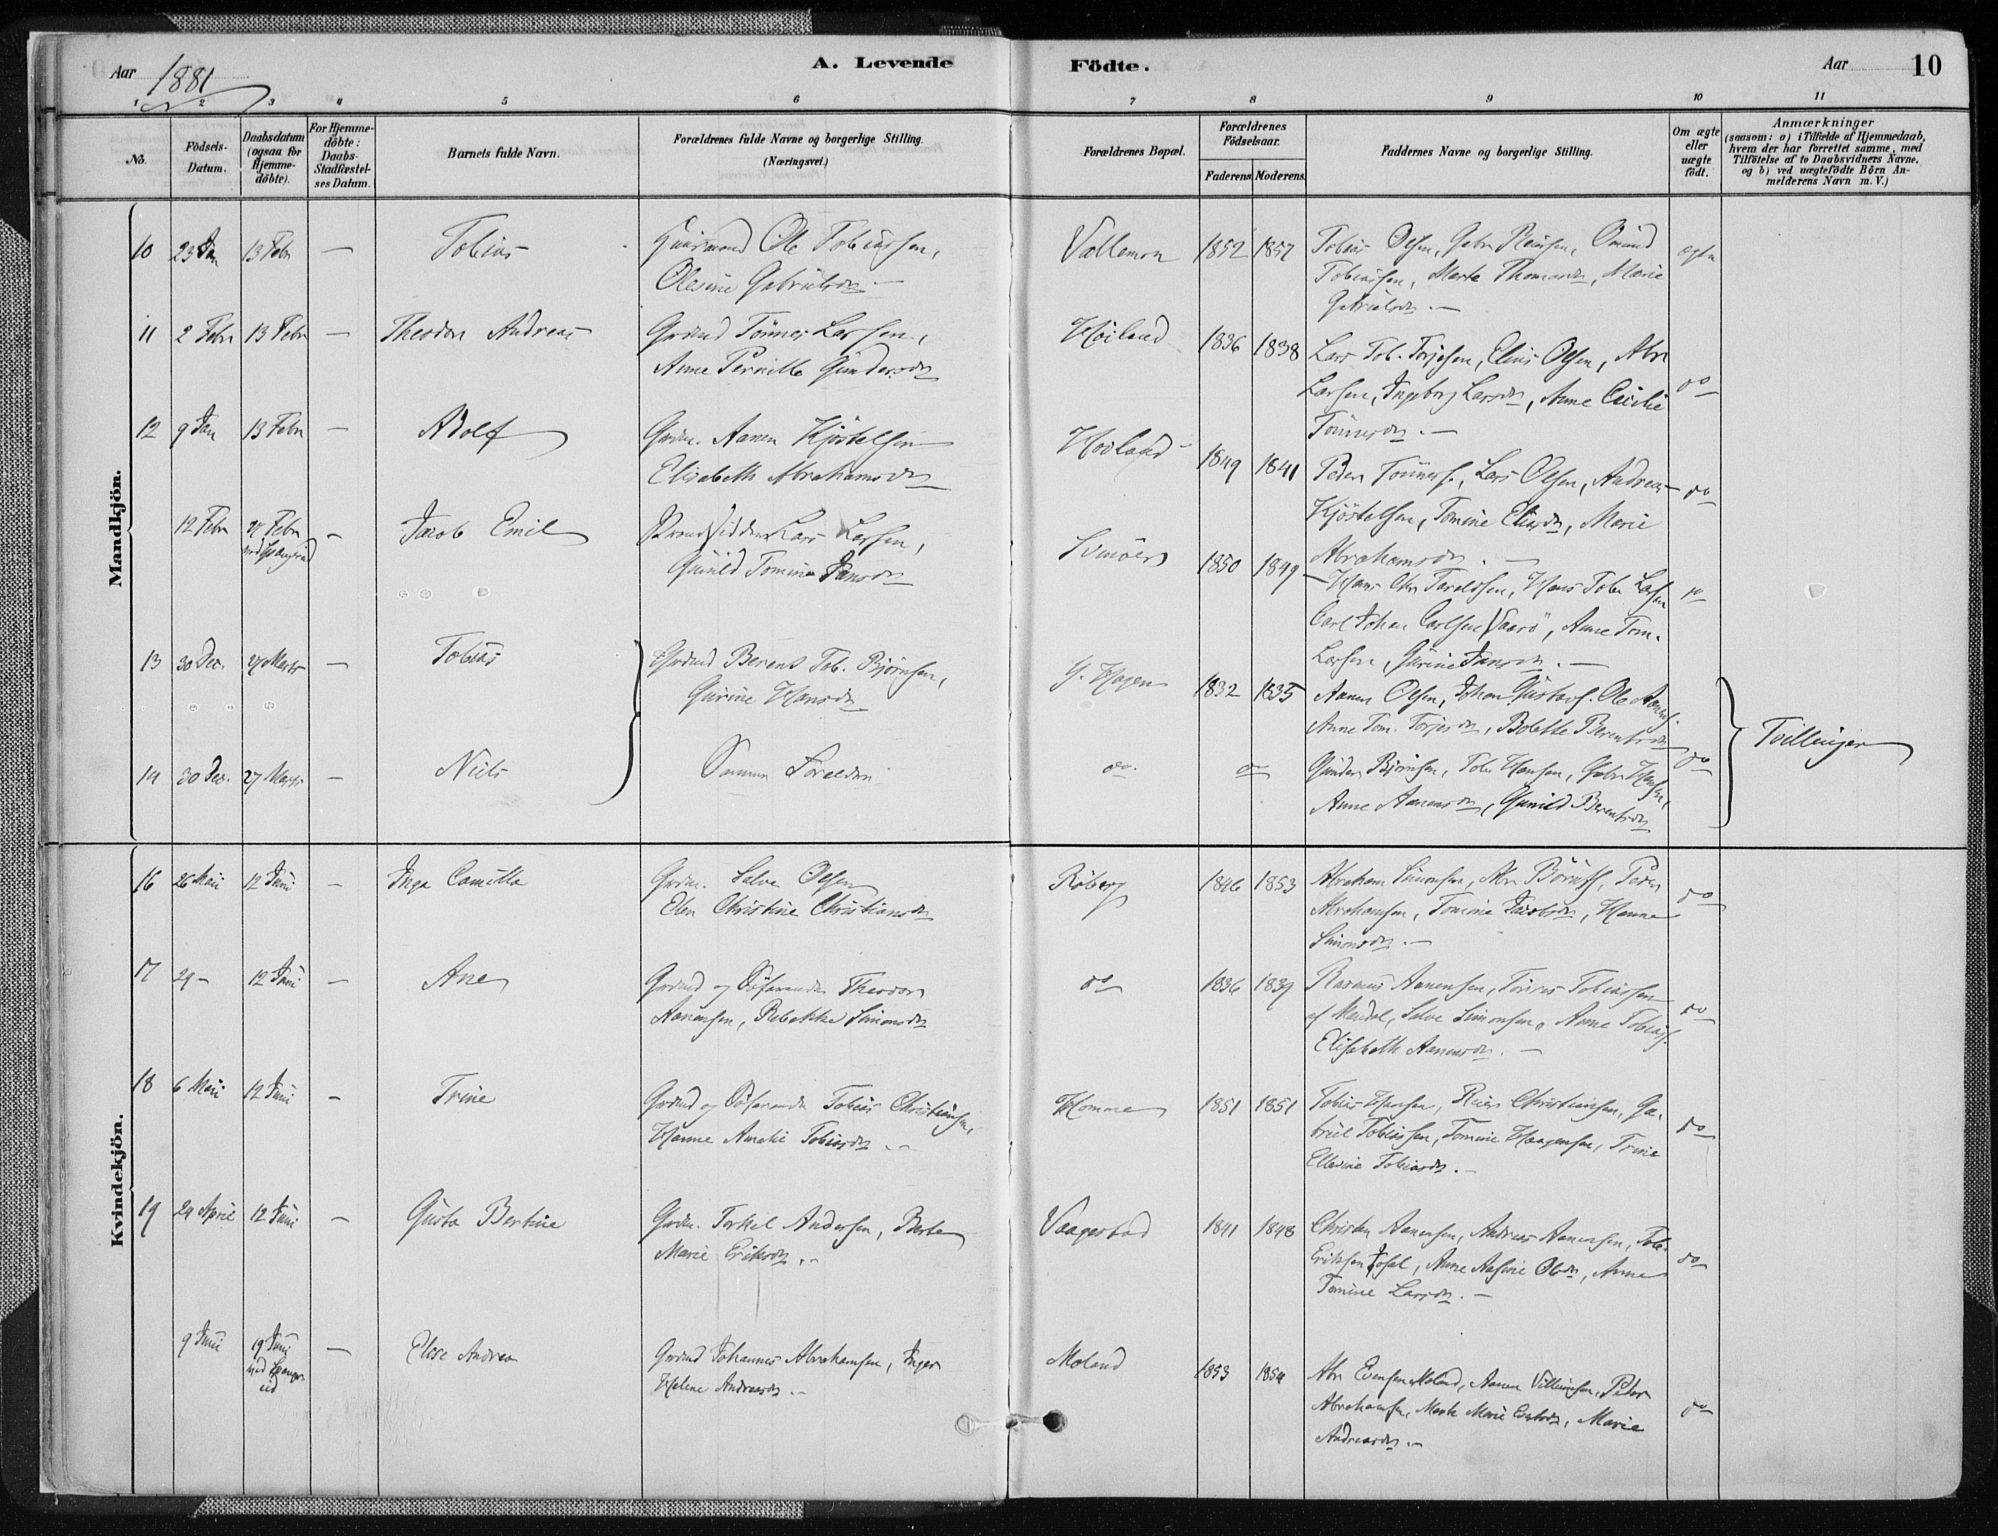 Aar 1881
A. Levende
Födte.
Aar
10
1 2 3 4 5 6 7 8 9 10 11
No.
Födsels-Datum.
Daabsdatum (ogsaa for Hjemme-döbte).
For Hjemme-döbte: Daabs-Stadfæstel-ses Datum.
Barnets fulde Navn.
Forældrenes fulde Navne og borgerlige Stilling.
(Næringsvei.)
Forældrenes Bopæl.
Forældrenes Födselsaar.
Faderens. Moderens.
Faddernes Navne og borgerlige Stilling.
Om ægte eller uægte födt.
Anmærkninger
(saasom: a) i Tilfælde af Hjemmedaab,
hvem der har forrettet samme, med
Tilföielse af to Daabsvidners Navne,
og b) ved uægtefödte Börn An-
melderens Navn m. V.)
Mandkjön.
10 23 Jan 13 Febr — Tobias
Ole Tobiassen,
Olesine Gabrielsdr —
Vallemon 1852 1857
Tobias Olsen, Gabr Reiersen, Omund
Tobiassen, Marte Thomasdr, Marie
Gabrielsdr. —
ægte
11 2 Febr 13 Febr — Theodor Andreas
Grdmd Tönnes Larsen,
Anne Pernille Gundersdr
Höiland 1836 1838
Lars Tob. Torjesen, Elias Olsen, Abr
Larsen, Ingeborg Larsdr, Anne Cecilie
Tönnesdr. —
do
12 9 Jan 13 Febr — Adolf
Grdm. Aanen Kjöstelsen
Elisabeth Abrahamsdr
Höiland 1849 1841
Peder Tönness., Lars Olsen, Andreas
Kjöstelsen, Tomine Eliasdr, Marie
Abrahamsdr. —
do
12 Febr 21 Febr ved Spangereid — Jacob Emil
Strandsidder Lars Larsen,
Gunild Tomine Jansdr
Svinöer 1850 1849
Hans Chr Tarelssen, Hans Tob. Larsen
Carl Johan Carlsen, Anne Tom.
Larsen, Gurine Jansdr. —
do
13 30 Dec. 27 Marts — Tobias
Grdmd Berent Tob. Bjørnsen,
Gurine Hansdr
Y. Hagen 1832 1835
Aanen Olsen, Johan Gustavs. Ole Aanens.
Anne Tom. Torjesdr, Bolette Berentsdr
14 30 Dec. 27 Marts — Niels
Samme Foreldre
do. do
Gunder Bjørnsen, Tobi Hansen, Gabr Hansen,
Anne Aanensdr, Gunild Berentsdr
do
Tvillinger
Kvindekjön.
16 26 Mai 12 Juni — Inga Camilla
Grdm. Salve Olsen
Elen Christine Christiansdr
Röberg 1846 1853
Abraham Simonsen, Abr Börufs, Peder
Abrahamsen, Tomine Jacobsdr, Hanne
Simonsdr. —
do
17 29 — 12 Juni — Ane
Grdmd og Söfarende Theodor
Aanensen, Rebekka Simonsdr
do 1836 1839
Rasmus Aanensen, Tönnes Tobiassen
af Mandal, Salve Simonsen, Anne Tobiass.
Elisabeth Aanensdr. —
do
18 6 Mai 12 Juni — Trine
Grdmd og Söfarende Tobias Christiansen,
Hanne Amalie Tobiasdr. —
Homme 1851 1851
Tobias Hansen, Reier Christiansen, Ga-
briel Tobiassen, Tomine Haagensen, Trine
Ellevine Tobiasdr. —
do
19 24 April 12 Juni — Gusta Bertine
Grdm. Torkel Andersen, Berte
Marie Eriksdr. —
Vaagestad 1841 1848
Christen Aanensen, Andreas Aanensen, Tob.
Eriksen, Anne Aasine Olsdr, Anne
Tomine Larsdr. —
do
9 Juni 19 Juni ved Spangereid — Elise Andrea
Grdmd Johannes Abrahamsen, Inger
Helene Andreasdr. —
Moland 1853 1854
Abr Evensen Moland, Aanen Villumsen, Peder
Abrahamsen, Marte Marie, Marie
Andreasdr. —
do